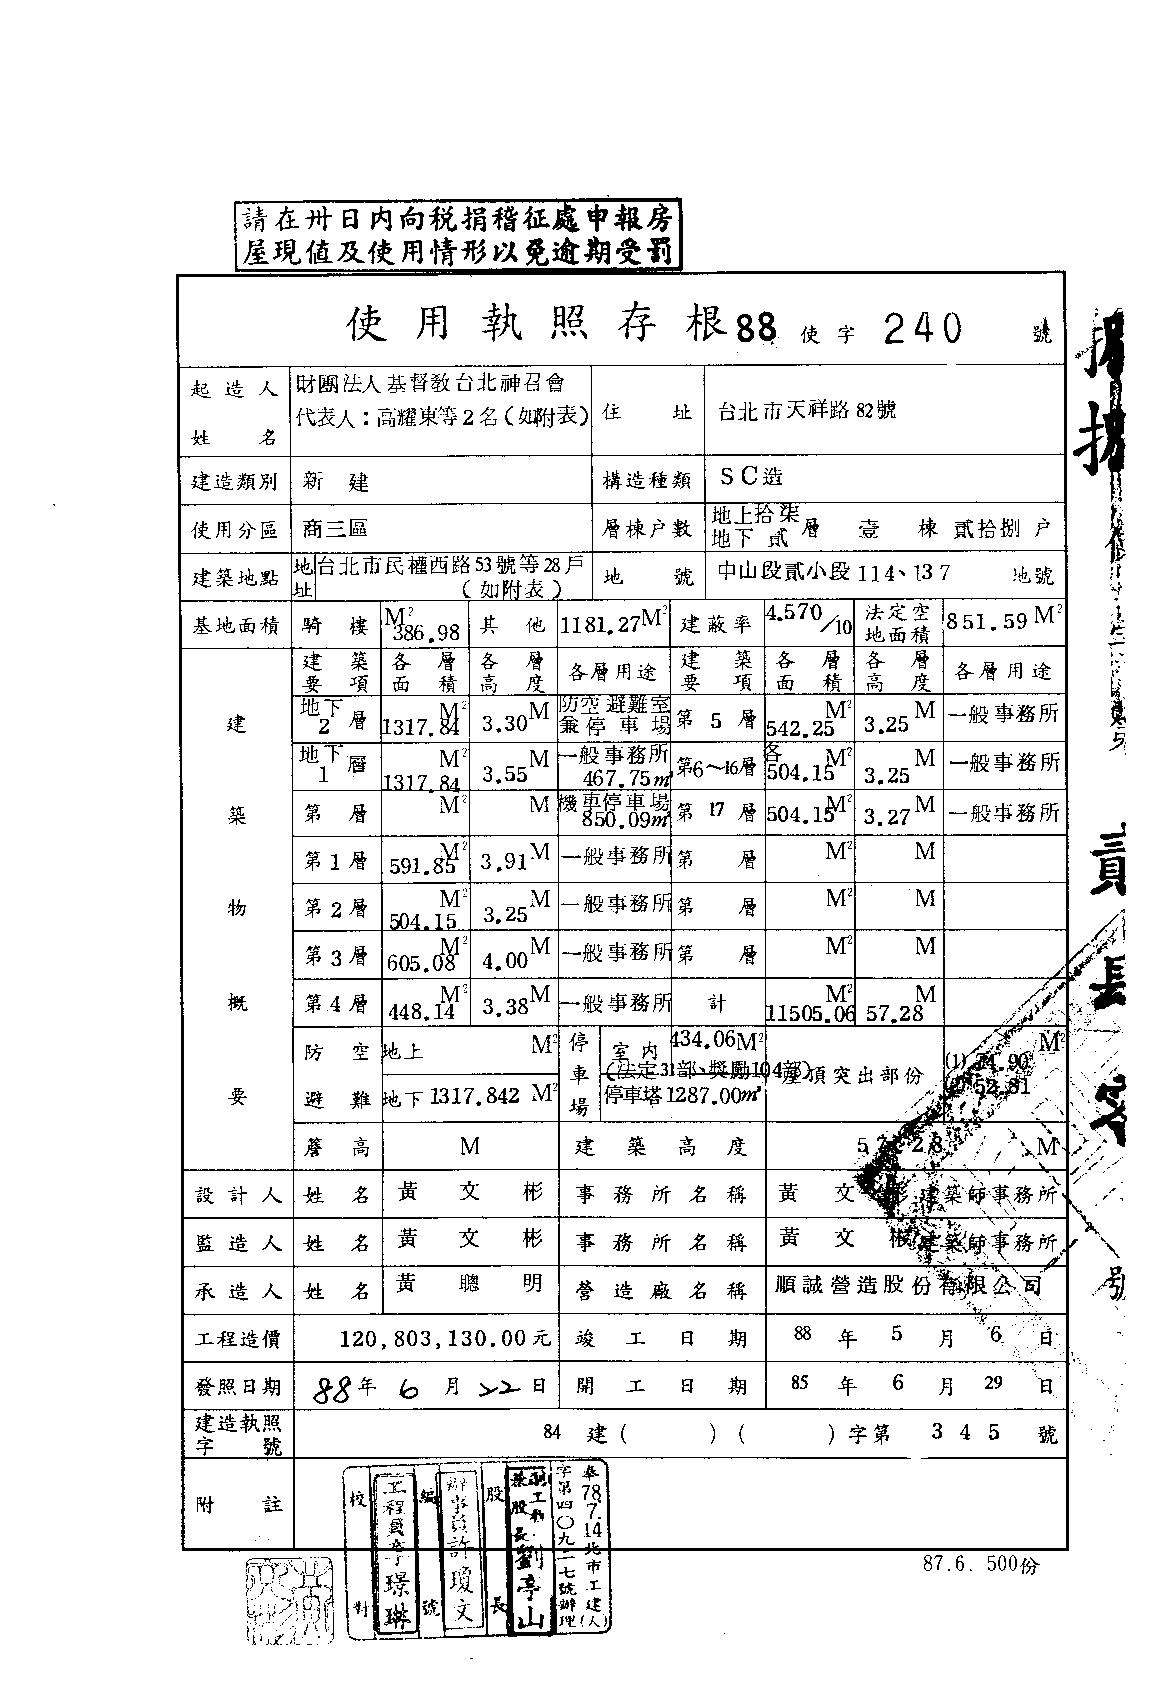 請在卅日內向稅捐稽征處申報房
屋現值及使用情形以免逾期受罰
使用執照存根88使字240號
起造人姓名 財團法人基督教台北神召會 住址 台北市天祥路82號
代表人：高耀東等2名（如附表）
建造類別 新建 構造種類 SC造
使用分區 商三區 層棟戶數 地上拾柒層 地下貳層 壹棟 貳拾捌戶
建築地點 地址 台北市民權西路53號等28戶 地號 中山段貳小段114、137 地號
（如附表）
基地面積 騎樓 386.98 M² 其他 1181.27M² 建蔽率 4.570/10 法定空地面積 851.59 M²
建築物概要
建築要項 各層面積 各層高度 各層用途 建築要項 各層面積 各層高度 各層用途
地下2層 1317.84 M² 3.30 M 防空避難室兼停車場 第5層 542.25 M² 3.25 M 一般事務所
地下1層 1317.84 M² 3.55 M 一般事務所 467.75㎡ 第6～16層 各504.15 M² 3.25 M 一般事務所
第 層 M² M 機車停車場 850.09㎡ 第17層 504.15 M² 3.27 M 一般事務所
第1層 591.85 M² 3.91 M 一般事務所 第 層 M² M
第2層 504.15 M² 3.25 M 一般事務所 第 層 M² M
第3層 605.08 M² 4.00 M 一般事務所 第 層 M² M
第4層 448.14 M² 3.38 M 一般事務所 計 11505.06 M² 57.28 M
防空避難 地上 M² 停車場 室內 434.06M² 屋頂突出部份 (1) 74.90 M²
（法定31部、獎勵104部）
地下 1317.842 M² 停車塔1287.00㎡ 52.81
簷高 M 建築高度 57.28 M
設計人 姓名 黃文彬 事務所名稱 黃文彬建築師事務所
監造人 姓名 黃文彬 事務所名稱 黃文彬建築師事務所
承造人 姓名 黃聰明 營造廠名稱 順誠營造股份有限公司
工程造價 120,803,130.00元 竣工日期 88年5月6日
發照日期 88年6月22日 開工日期 85年6月29日
建造執照字號 84建( )( )字第345號
附註
奉78.7.14北市工建(人)
字第四〇九二七號辦理
股長
劉亭山
辦事員許瓊文
編號
校對
87.6. 500份
號